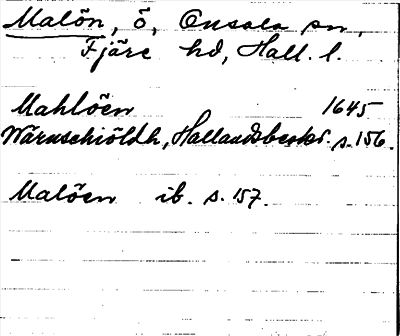 Malön, ö, Onsala sn,
Fjäre hd, Hall. l.
Mahlöen 1645
Wärnschiöldh, Hallandsbeskr. s. 156.
Malöen ib. s. 157.